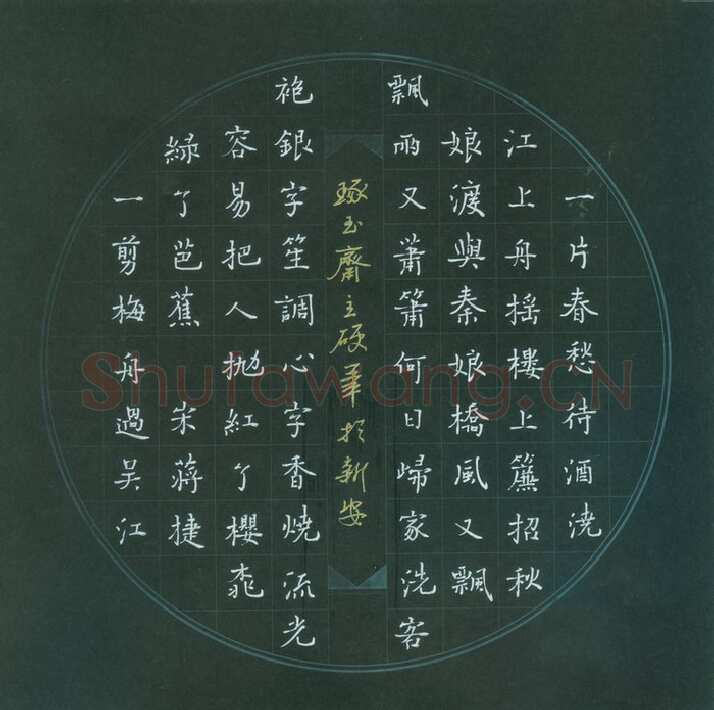 一片春愁待酒澆
江上舟搖樓上簾招秋
娘渡與秦娘橋風又飄
飄雨又蕭簫何日歸家洗客
琢玉齋主硬筆於新安
袍銀字笙調心字香燒流光
容易把人拋紅了櫻桃
綠了芭蕉 宋蔣捷
一剪梅舟過吳江
Shufawang.CN